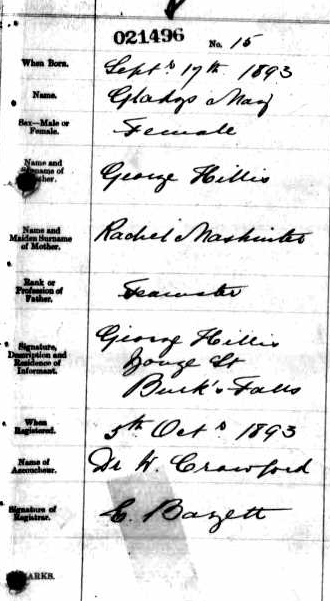 021496 No. 15
When Born. Sept. 17th 1893
Name. Gladys May
Sex—Male or Female. Female
Name and Surname of Father. George Hillis
Name and Maiden Surname of Mother. Rachel
Rank or Profession of Father. Teamster
Signature, Description and Residence of Informant. George Hillis
Yonge St
Burk's Falls
When Registered. 5th Oct. 1893
Name of Accoucheur. Dr W. Crawford
Signature of Registrar. C. Bazett
ARKS.